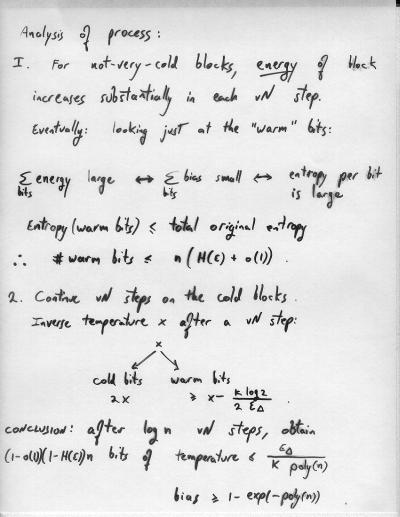 Analysis of process:
1. For not-very-cold blocks, energy of block
increases substantially in each vN step.
Eventually: looking just at the "warm" bits:
∑ energy large ↔ ∑ bias small ↔ entropy per bit
bits bits is large
Entropy (warm bits) ≤ total original entropy
∴ # warm bits ≤ n(H(ε) + o(1)).
2. Continue vN steps on the cold blocks.
Inverse temperature x after a vN step:
x
cold bits warm bits
2x ≥ x - K log 2 / 2 ε_Δ.
CONCLUSION: after log n vN steps, obtain
(1-o(1))(1-H(ε))n bits of temperature ≤ ε_Δ / K poly(n)
bias ≥ 1 - exp(-poly(n))